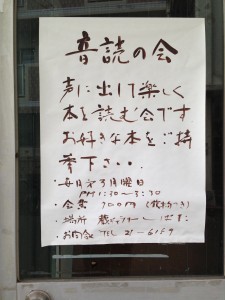 音読の会
声に出して楽しく
本を読む会です
お好きな本をご持
零下さい・・
・毎月第3月曜日
PM1:30〜3:30
・会費 700円
・場所 蔵ギャラリー
・お問合 TEL 21-6159